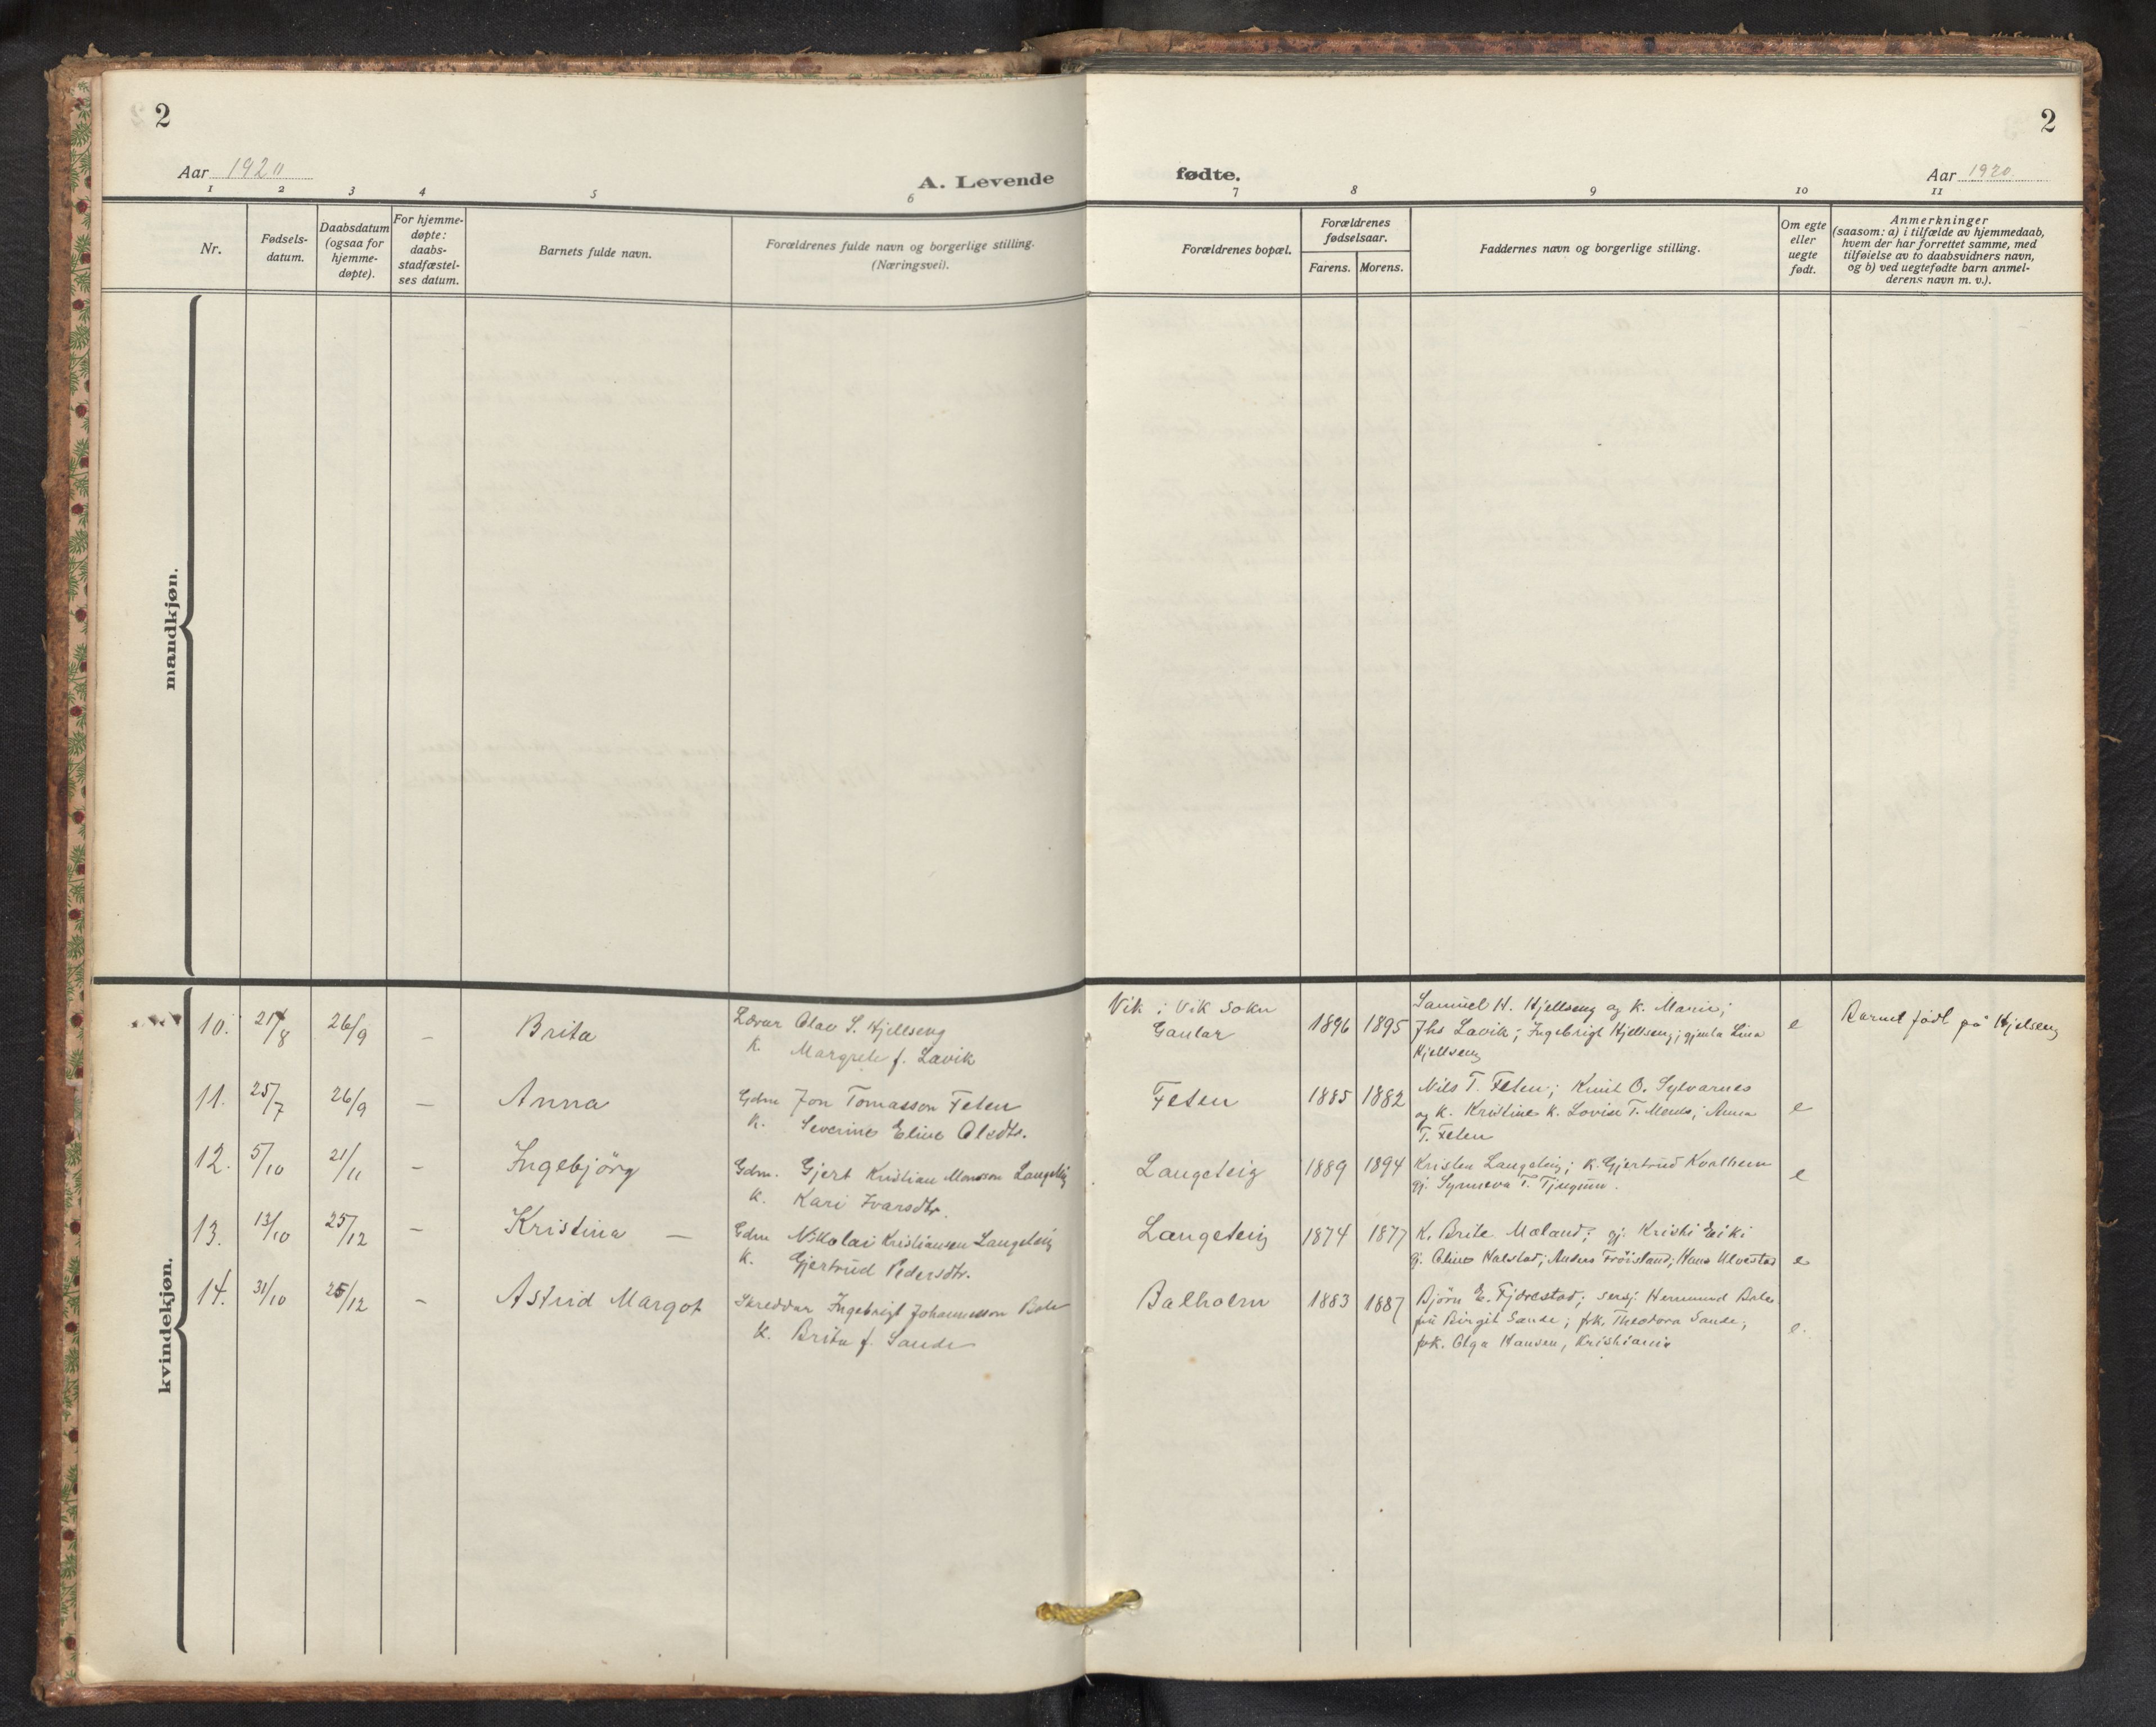 2
2
Aar 1920
A. Levende
fødte.
Aar 1920
1 2 3 4 5 6 7 8 9 10 11
Nr.
Fødsels-
datum.
Daabsdatum
(ogsaa for
hjemme-
døpte).
For hjemme-
døpte:
daabs-
stadfæstel-
ses datum.
Barnets fulde navn.
Forældrenes fulde navn og borgerlige stilling.
(Næringsvei).
Forældrenes bopæl.
Forældrenes
fødselsaar.
Farens. Morens.
Faddernes navn og borgerlige stilling.
Om egte
eller
uegte
født.
Anmerkninger
(saasom: a) i tilfælde av hjemmedaab,
hvem der har forrettet samme, med
tilføielse av to daabsvidners navn,
og b) ved uegtefødte barn anmel-
derens navn m. v.).
mandkjøn.
kvindekjøn.
10. 26/9 – Brita
Lærar Olav S. Hjellseng
K. Margrete f. Lavik
Vik i Vik sokn
Gaular
1896 1895
Samuel H. Hjellseng og K. Marie;
Jhs Lavik; Ingebrigt Hjellseng; gjenta Lina
Hjellseng
e
Barnet født på Hjelseng
11. 25/7 26/9 – Anna
Gdm Jon Tomasson Feten
K. Severine Eline Olsdtr.
Feten
1885 1882
Nils T. Feten; Knut O. Sylvarnes
og K. Kristine K. Lovise T. Menes; Anna
T. Feten
e
12. 5/10 21/11 – Ingebjörg
Gdm. Gjert Kristian Monsson Langeteig
K. Kari Ivarsdtr.
Langeteig
1889 1894
Kristen Langeteig; K. Gjertrud Kvalheim
gj. Synneva T. Tjugum.
e
13. 13/10 25/12 – Kristina –
Gdm Nikolai Kristiansen Langeteig
K. Gjertrud Pedersdtr.
Langeteig
1874 1877
K. Brite Mæland; gj. Kristi Eiki
gj. Oline Halstad; Anders Fröistand; Hans Ulvestad
e
14. 31/10 25/12 – Astrid Margot
Skreddar Ingebrigt Johannesson Bale
K. Brita f. Sande
Balholm
1883 1887
Bjørn E. Fjærestad; sersj. Hermund Bale
fru Birgit Sande; frk. Theodora Sande;
frk. Olga Hansen, Kristiania
e.